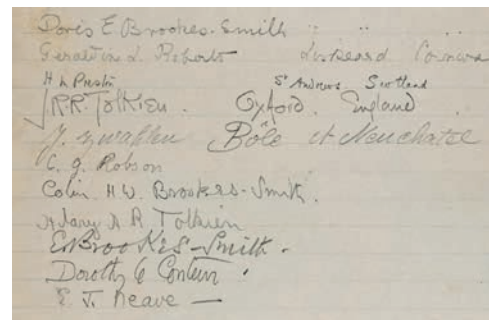 Doris E Brookes-Smith " "
Geraldine L. Roberts Liskeard Cornwall
H L Preston St Andrews Scotland
J.R.R. Tolkien. Oxford. England
J. Zwahlen Bôle et Neuchatel
C. G. Robson
Colin H.W. Brookes-Smith.
Hilary A R Tolkien
E. Brookes-Smith.
Dorothy le
E. J. Neave —